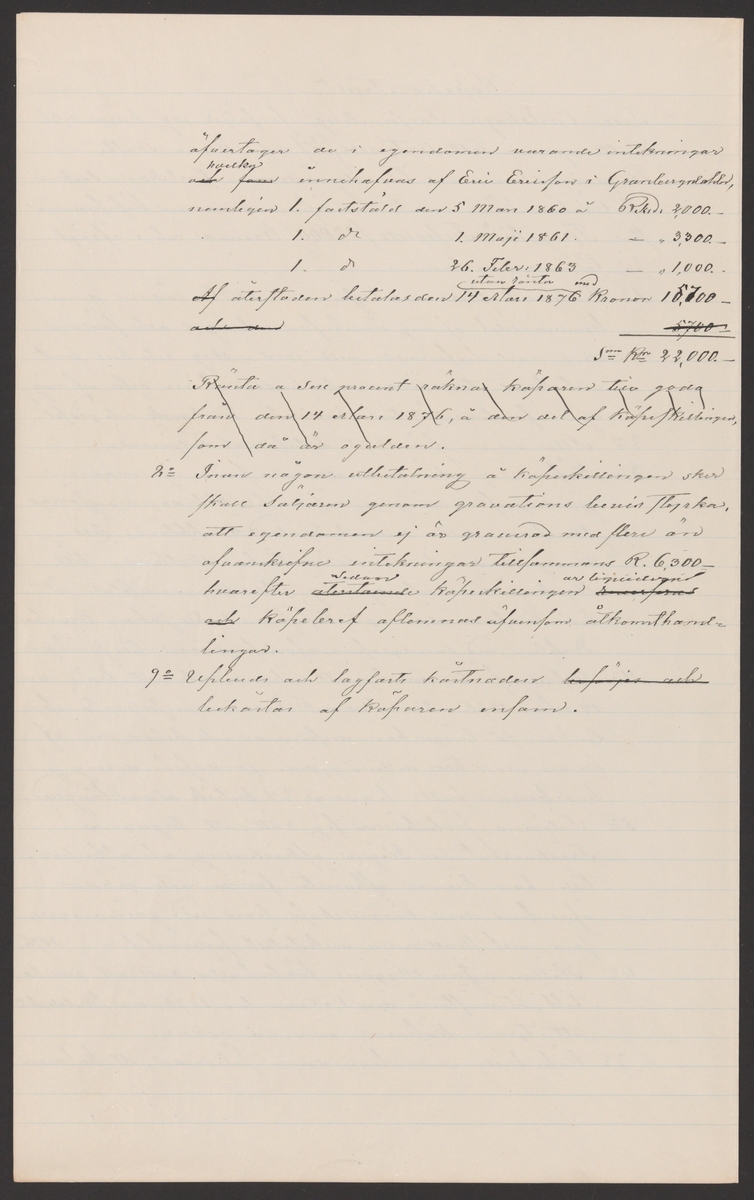 öfvertager de i egendomen varande inteckningar
hvilka
och som innehafvas af Eric Ericsson i Granbergsdahln,
nemligen 1. fastställd den 5 Mars 1860 å Riksd. 2,000.—
1. do 1. Maji 1861. — " 3,300.—
1. do 26. Febr: 1863 — " 1,000.—
utan ränta med
Af återstoden betalas den 14 Mars 1876 Kronor 15,700—
och den 5700—
Smn Rmt 22,000.—
Ränta a sex procent räknas köparen till godo
från den 14 Mars 1876, å den del af köpeskillingen,
som då är ogulden.
Innan någon utbetalning å köpeskillingen sker
skall Säljaren genom gravations bevis styrka,
att egendomen ej är graverad med flere än
ofvanskrifne inteckningar tillsammans R. 6,300—
sedan är liqviderad
hvarefter återstående köpeskillingen
och köpebref aflemnas äfvensom åtkomsthand=
lingar.
9o Upbuds och lagfarts kostnaden och
bekostas af köparen ensam.